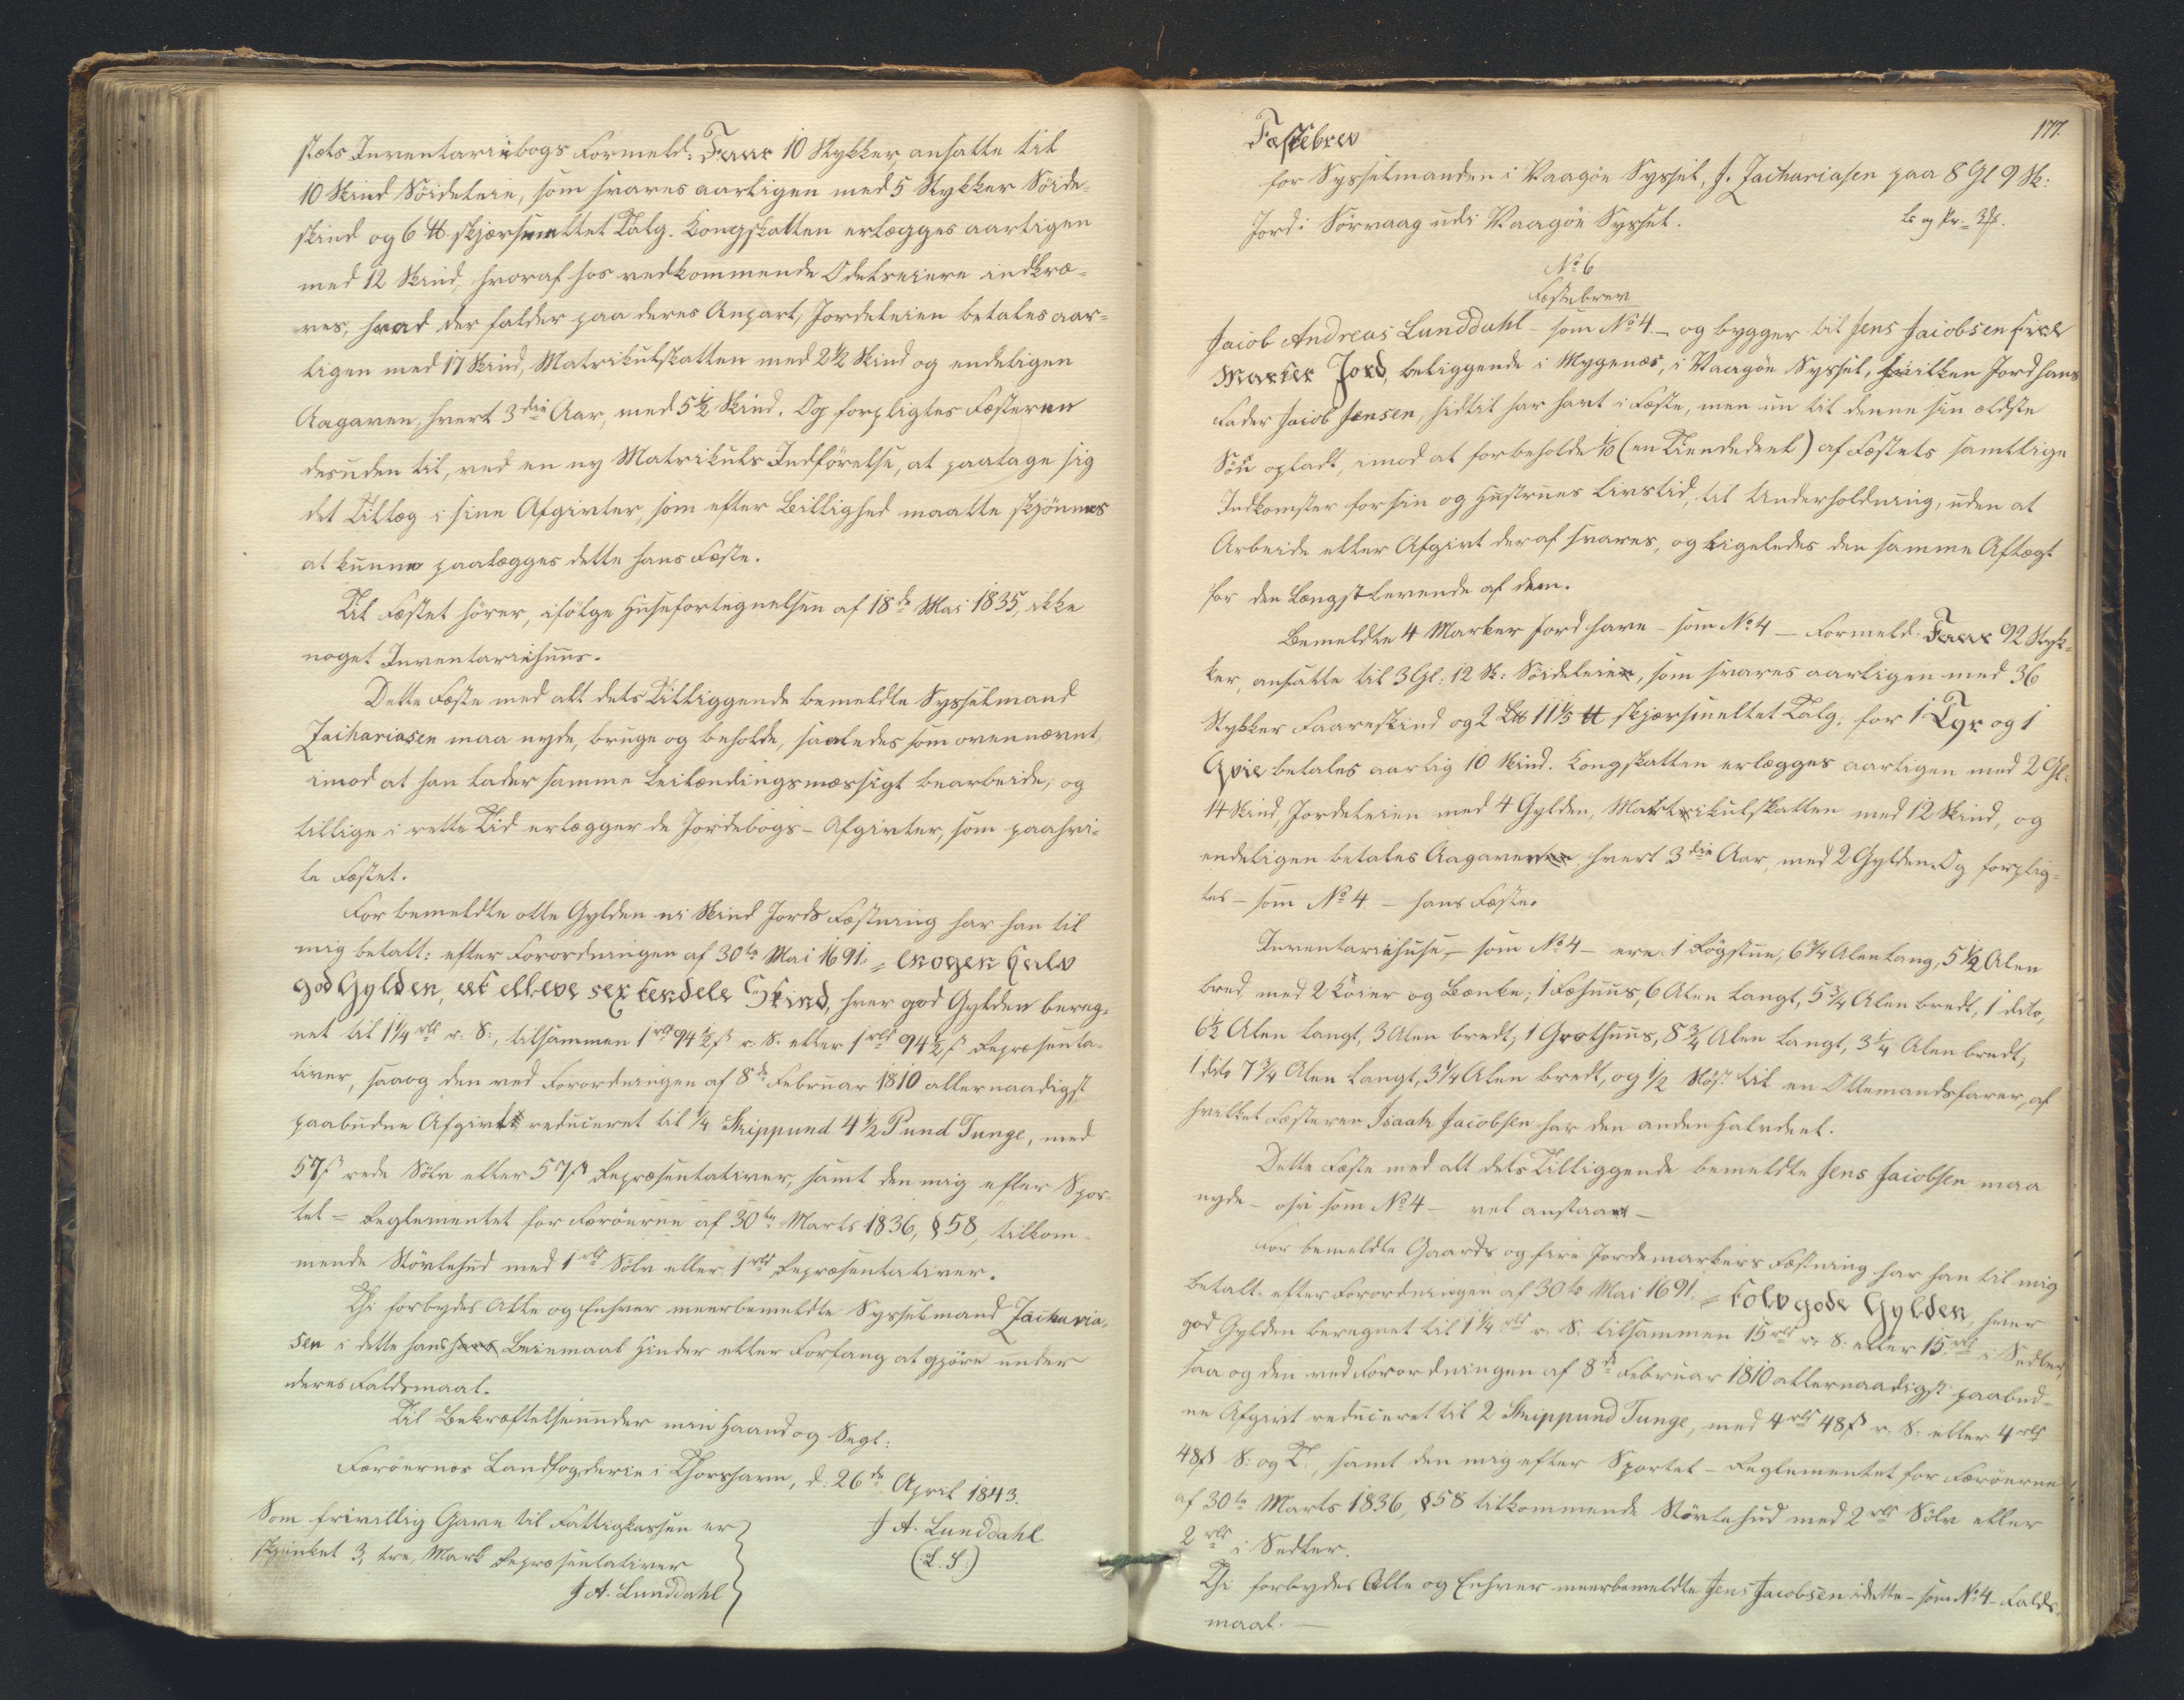 stets Inventariibogs Formeld: Faar 10 Stykker, ansatte til
10 Skind Söideleie, som svares aarligen med 5 Stykker Söide-
skind og 6 ℔ skjærsmeltet Talg. Kongskatten erlægges aarligen
med 12 Skind, hvoraf hos vedkommende Odelseiere indkræ-
ves, hvad der falder paa deres Anpart, Jordeleien betales aar-
ligen med 17 Skind, Matrikulskatten med 2½ Skind og endeligen
Aagaven, hvert 3die Aar, med 5½ Skind. Og forpligtes Fæsteren
desuden til, ved en ny Matrikuls Indförelse, at paatage sig
det Tillæg i sine Afgivter, som efter Billighed maatte skjönnes
at kunne paalægges dette hans Fæste.
Til Fæstet hörer, ifölge Husefortegnelsen af 18de Mai 1835, ikke
noget Inventariihuus.
Dette Fæste med alt dets Tilliggende bemeldte Sysselmand
Zachariasen maa nyde, bruge og beholde, saaledes som ovennævnt,
imod at han lader samme Leilændingsmæssigt bearbeide, og
tillige i rette Tid erlægger de Jordebogs-Afgivter, som paahvi-
le Fæstet.
For bemeldte otte Gylden ni Skind Jords Fæstning har han til
mig betalt: efter Forordningen af 30te Mai 1691: = en ogen halv
god Gylden, et elleve sex tendele Skind, hver god Gylden bereg-
net til 1¼ rbd r. S:, tilsammen 1 rbd 94½ ß r. S. eller 1 rbd 94½ ß Repræsenta-
tiver, saaog den ved Forordningen af 8de Februar 1810 allernaadigst
paabudne Afgivt reduceret til ¼ Skippund 4½ Pund Tunge, med
57 ß rede Sölv eller 57 ß Repræsentativer, samt den mig efter Spor-
tel-Reglementet for Færöerne af 30te Marts 1836, § 58, tilkom-
mende Stövlehud med 1 rbd Sölv eller 1 rbd Repræsentativer.
Thi forbydes Alle og Enhver meerbemeldte Sysselmand Zacharia-
sen i dette hans Leiemaal Hinder eller Forfang at gjöre under
deres Faldsmaal.
Til Bekræftelse under min Haand og Segl:
Færöernes Landfogderie i Thorshavn, d. 26de April 1843.
Som frivillig Gave til Fattigkassen er
skjænket 3, tre, Mark Repræsentativer
J A. Lunddahl
J A. Lunddahl
(L. S.)
177.
Fæstebrev
for Sysselmanden i Vaagöe Syssel, J. Zachariasen paa 8 Gl 9 Sk:
Jord i Sörvaag udi Vaagöe Syssel.
No 6
Fæstebrev
Jacob Andreas Lunddahl - som No 4 - og bygger til Jens Jacobsen fire
Marker Jord, beliggende i Mygenæs, i Vaagöe Syssel, hvilken Jord hans
Fader Jacob Jensen, hidtil har havt i Fæste, men nu til denne sin ældste
Sön opladt, imod at forbeholde 1/10 (en Tiendedeel) af Fæstets samtlige
Indkomster for sin og Hustrues Livstid, til Underholdning, uden at
Arbeide eller Afgivt deraf svares, og ligeledes den samme Aftægt
for den Længstlevende af dem.
Bemeldte 4 Marker Jord have - som No 4 - Formeld: Faar 92 Styk-
ker, ansatte til 3 Gl. 12 Sk: Söideleie, som svares aarligen med 36
Stykker Faareskind og 2 L℔ 11⅕ ℔ skjærsmeltet Talg; for 1 Tyr og 1
Qvie betales aarlig 10 Skind. Kongskatten erlægges aarligen med 2 Gl.
14 Skind, Jordeleien med 4 Gylden, Matrikulskatten med 12 Skind, og
endeligen betales Aagaven hvert 3die Aar, med 2 Gylden. Og forplig-
tes - som No 4. - hans Fæste.
Inventariihuse, - som No 4 - ere: 1 Rögstue, 6¾ Alen lang, 5½ Alen
bred med 2 Köier og Bænke; 1 Fæhuus, 6 Alen langt, 5¾ Alen bredt, 1 dito,
6½ Alen langt, 3 Alen bredt; 1 Grothuus, 8¾ Alen langt, 3¼ Alen bredt;
1 dito 7¾ Alen langt, 3¼ Alen bredt, og ½ Nöst til en Ottemandsfarer, af
hvilket Fæsteren Isaak Jacobsen har den anden Halvdeel.
Dette Fæste med alt dets Tilliggende bemeldte Jens Jacobsen maa
nyde - osv som No 4 - vel anstaae -
For bemeldte Gaards og fire Jordemarkers Fæstning har han til mig
betalt: efter Forordningen af 30te Mai 1691. = tolv gode Gylden, hver
god Gylden beregnet til 1¼ rbd r. S. tilsammen 15 rbd r. S: eller 15 rbd i Sedler,
saa og den ved Forordningen af 8de Februar 1810 allernaadigst paabud-
ne Afgivt reduceret til 2 Skippund Tunge, med 4 rbd 48 ß r. S. eller 4 rbd
48 ß S. og T., samt den mig efter Sportel-Reglementet for Færöerne
af 30te Marts 1836, § 58 tilkommende Stövlehud med 2 rbd Sölv eller
2 rbd i Sedler.
Thi forbydes Alle og Enhver meerbemeldte Jens Jacobsen i dette - som No 4 - Falds-
maal. -